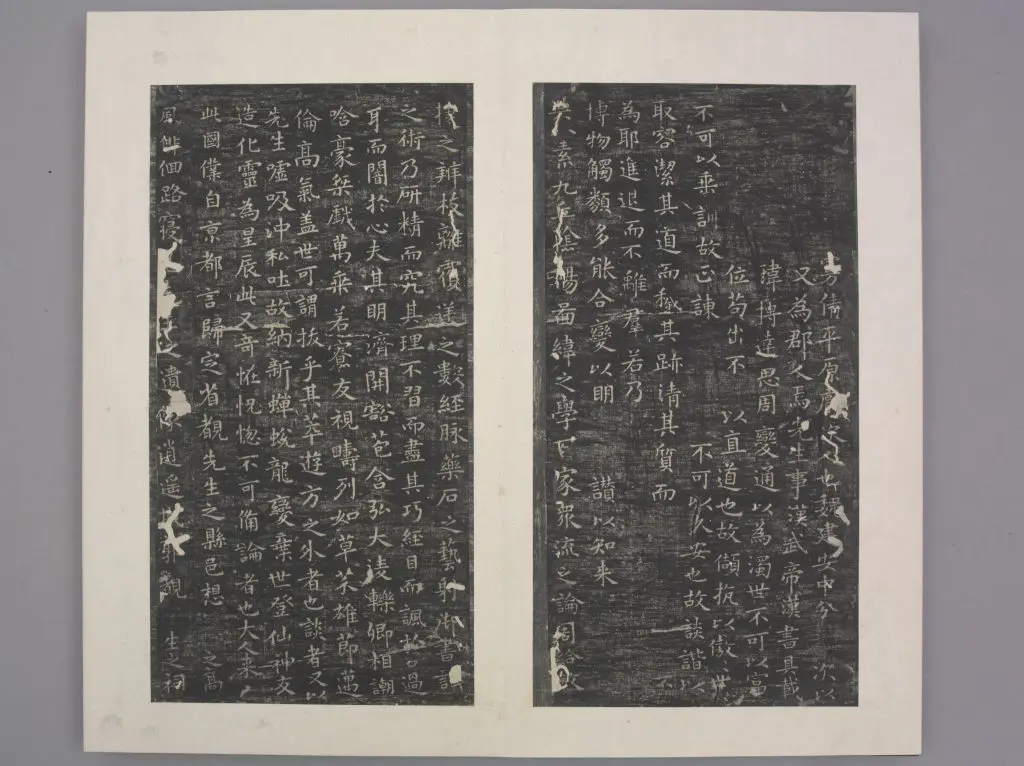 方倩平原厭次人也魏建安中分 次以
又為郡人焉先生事漢武帝漢書具載
瑋博達思周變通以為濁世不可以富
位苟出不 以直道也故頡抗以傲世
不可以乘訓故正諫 不可以久安也故談諧以
取容潔其道而穢其跡清其質而
為耶進退而不離羣若乃
博物觸類多能合變以明 讚以知來
素九丘陰陽圖緯之學百家眾流之論周給敏
捷之辨枝離覆逆之數經脉藥石之藝射御書計
之術乃研精而究其理不習而盡其巧經目而諷於口過
耳而闇於心夫其明濟開豁苞含弘大淩轢卿相謿
哈豪桀戲萬乘若寮友視疇列如草芥雄節邁
倫高氣盖世可謂拔乎其萃遊方之外者也談者又以
先生噓吸沖和吐故納新蟬蛻龍變棄世登仙神友
造化靈為星辰此又奇恠怳惚不可備論者也大人來
此國僕自京都言歸定省覩先生之縣邑想 之高
風徘徊路寑 之遺像逍遥 觀 生之祠